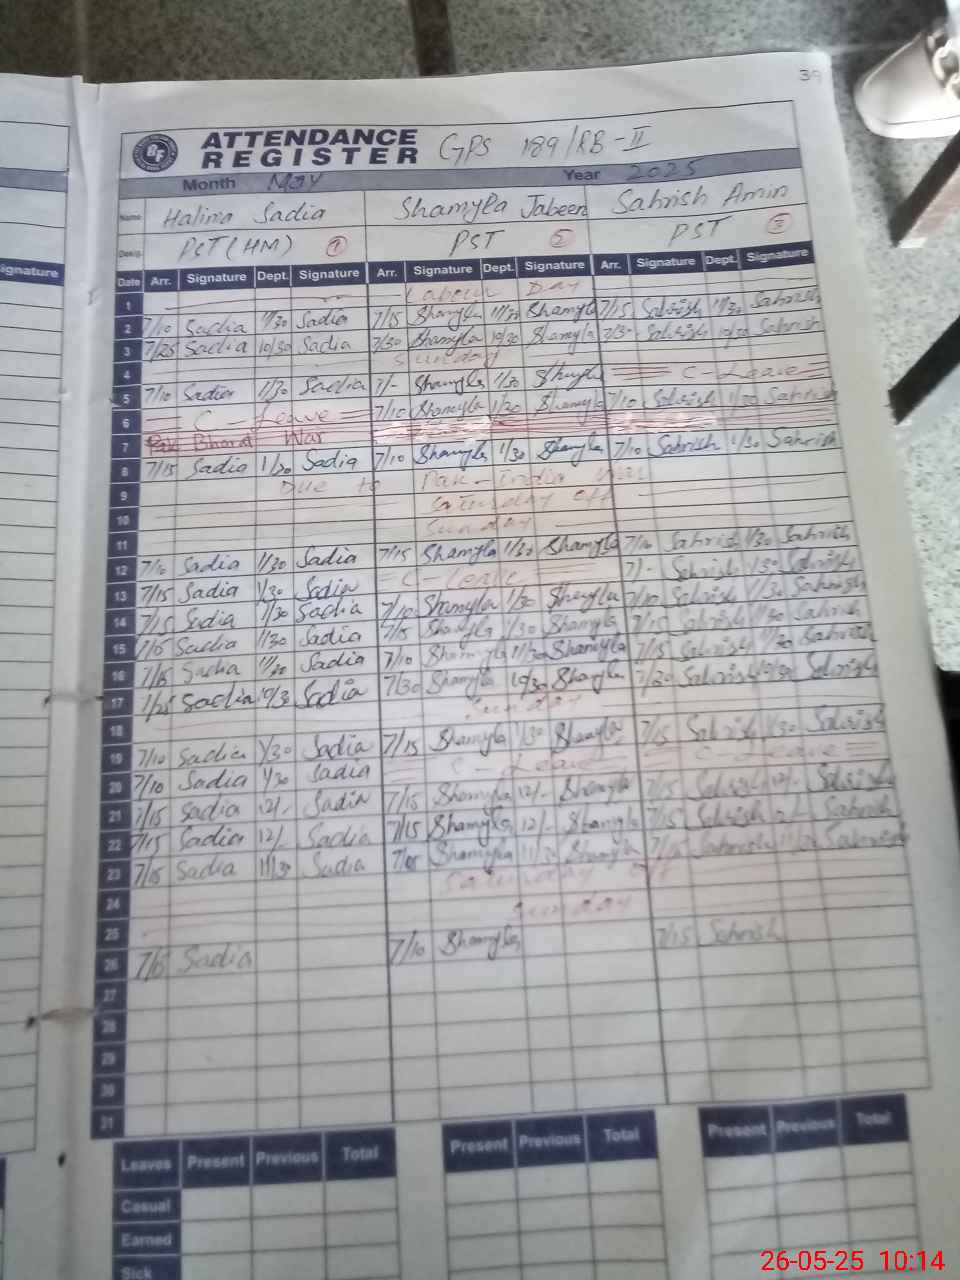 39
ATTENDANCE REGISTER GPS 189/RB-II
Month May Year 2025
Name Halima Sadia Shamyla Jabeen Sahrish Amin
Desig. PST (HM) 1 PST 2 PST 3
Signature
Date Arr. Signature Dept. Signature Arr. Signature Dept. Signature Arr. Signature Dept. Signature
1 Labour Day
2 7/10 Sadia 11/30 Sadia 7/15 Shamyla 11/30 Shamyla 7/15 Sahrish 11/30 Sahrish
3 7/25 Sadia 10/30 Sadia 7/30 Shamyla 10/30 Shamyla 7/30 Sahrish 10/30 Sahrish
4 Sunday
5 7/10 Sadia 1/30 Sadia 7/- Shamyla 1/30 Shamyla C-Leave
6 C-Leave 7/10 Shamyla 1/30 Shamyla 7/10 Sahrish 1/30 Sahrish
7 Pak Bharat War
8 7/15 Sadia 1/30 Sadia 7/10 Shamyla 1/30 Shamyla 7/10 Sahrish 1/30 Sahrish
9 Due to Pak-India War
10 Saturday off
11 Sunday
12 7/10 Sadia 1/30 Sadia 7/15 Shamyla 1/30 Shamyla 7/10 Sahrish 1/30 Sahrish
13 7/15 Sadia 1/30 Sadia C-Leave 7/- Sahrish 1/30 Sahrish
14 7/15 Sadia 1/30 Sadia 7/10 Shamyla 1/30 Shamyla 7/10 Sahrish 1/30 Sahrish
15 Sadia 1/30 Sadia 7/15 Shamyla 1/30 Shamyla 7/15 Sahrish 1/30 Sahrish
16 7/15 Sadia 11/30 Sadia 7/10 Shamyla 11/30 Shamyla 7/15 Sahrish 11/30 Sahrish
17 Sadia 10/30 Sadia 7/30 Shamyla 10/30 Shamyla 7/20 Sahrish 10/30 Sahrish
18 Sunday
19 7/10 Sadia 1/30 Sadia 7/15 Shamyla 1/30 Shamyla 7/15 Sahrish 1/30 Sahrish
20 7/10 Sadia 1/30 Sadia C-Leave C-Leave
21 7/15 Sadia 12/- Sadia 7/15 Shamyla 12/- Shamyla 7/15 Sahrish 12/- Sahrish
22 7/15 Sadia 12/- Sadia 7/15 Shamyla 12/- Shamyla 7/15 Sahrish 12/- Sahrish
23 7/15 Sadia 11/30 Sadia Shamyla 11/30 Shamyla 7/15 Sahrish 11/30 Sahrish
24 Saturday off
25 Sunday
26 Sadia 7/10 Shamyla 7/15 Sahrish
27
28
29
30
31
Leaves Present Previous Total Present Previous Total Present Previous Total
Casual
Earned
Sick
26-05-25 10:14